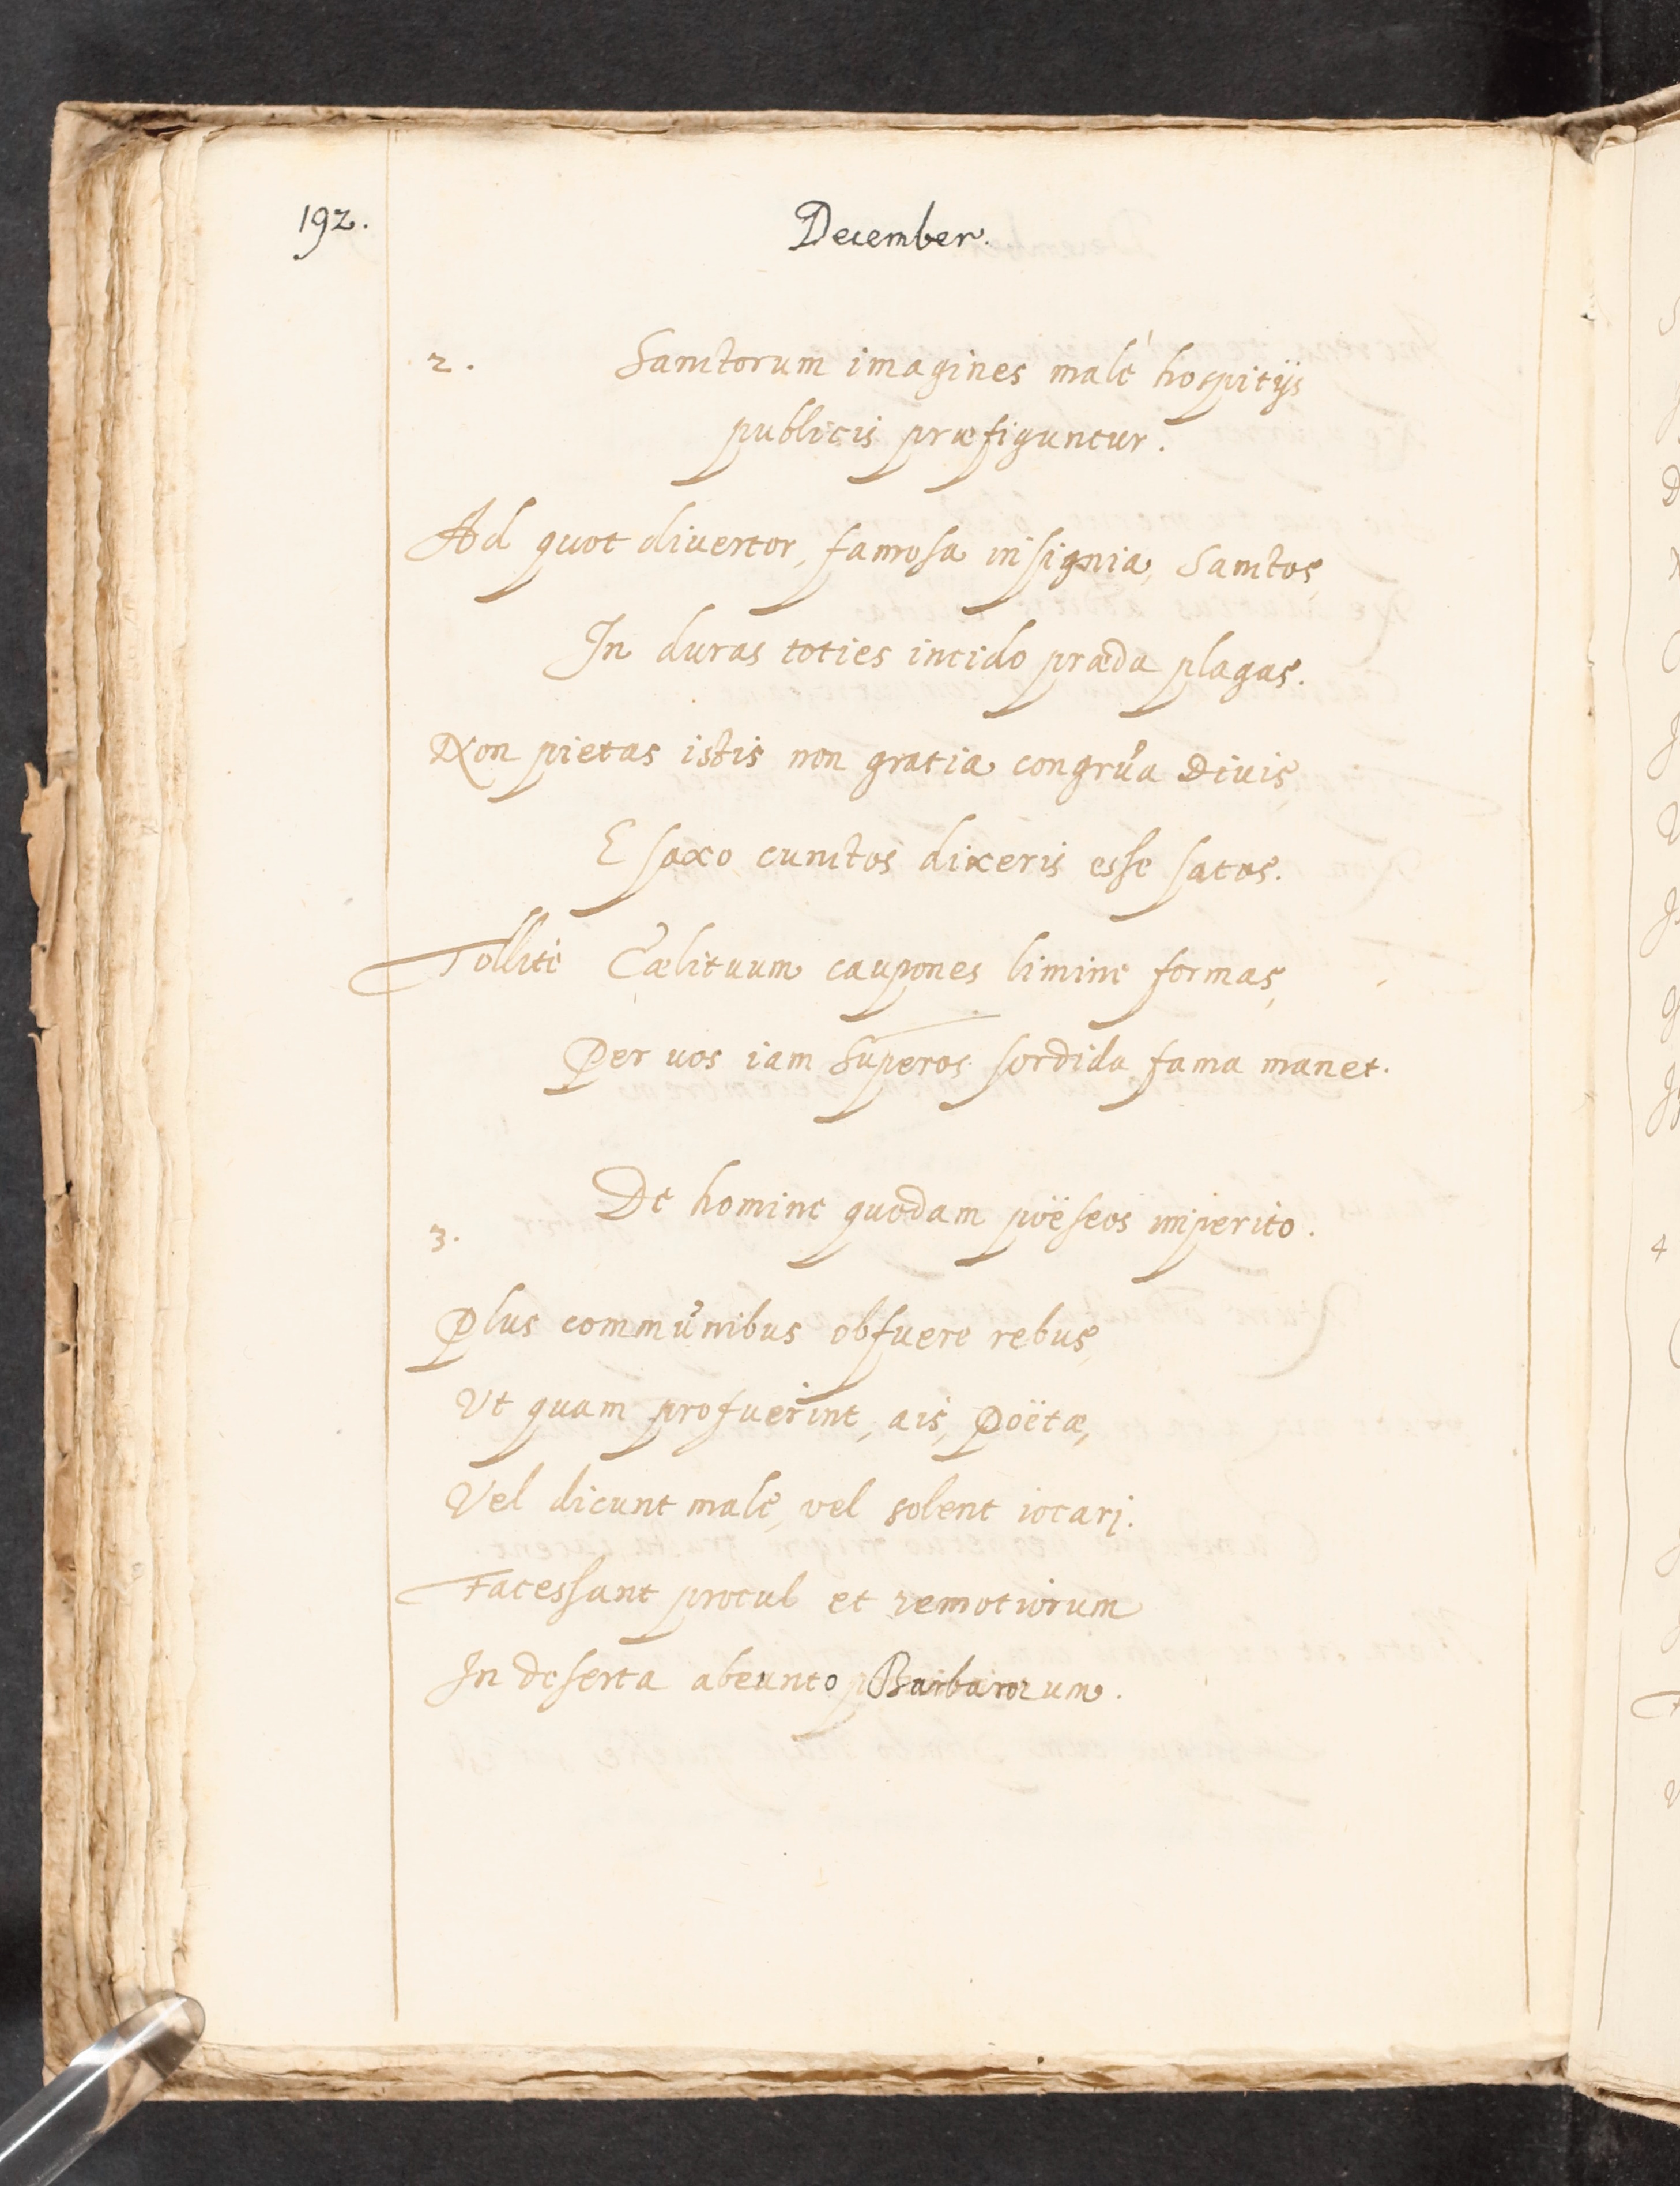 192.
December.
2. Sanctorum imagines malè hospitijs
publicis præfiguntur.
Ad quot divertor, famosa insignia, Sanctos,
In duras toties incido præda plagas.
Non pietas istis non gratia congrŭa Divis,
E saxo cunctos dixeris esse satos.
Tollite Cælituum caupones limine formas,
Per uos iam Sŭperos sordida fama manet.
De homine quodam poëseos imperito.
3.
Plus commŭnibus obfuere rebus,
Vt quam profuerint, ais, Poëtæ,
Vel dicunt male, vel solent iocarj.
Facessant procul et remotiorum
In deserta abeunto Barbarorum.